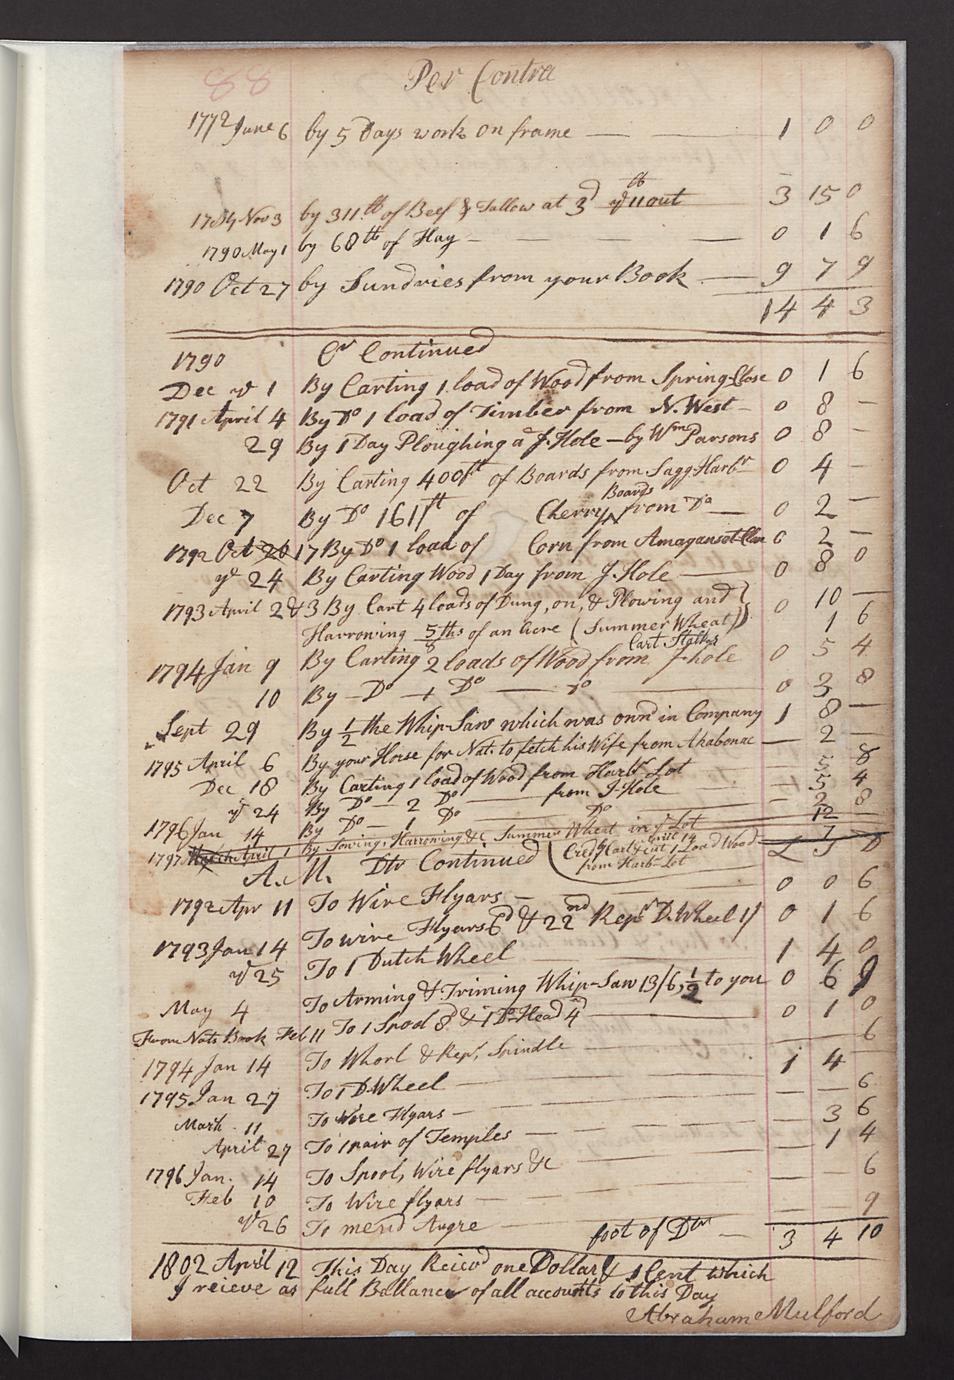 88
Per Contra
1772 June 6 by 5 Days work on frame — — 1 0 0
1784 Nov 3 by 311 lb of Beef & Tallow at 3d ye 11 lb out 3 15 0
1790 May 1 by 68 lb of Hay — — — — 0 1 6
1790 Oct 27 by Sundries from your Book — 9 7 9
14 4 3
1790 Cr Continued
Dec ye 1 By Carting 1 load of Wood from Spring-Close 0 1 6
1791 April 4 By Do 1 load of Timber from N. West — 0 8 —
29 By 1 Day Ploughing at J. Hole — by Wm Parsons 0 8 —
Oct 22 By Carting 400 ft of Boards from Sagg Harbr 0 4 —
Dec 7 By Do 161 ft of Cherry Boards from Do — 0 2 —
1792 Oct 20 17 By Do 1 load of Corn from Amagansot Clos 0 2 —
ye 24 By Carting Wood 1 Day from J. Hole — 0 8 0
1793 April 2 & 3 By Cart 4 loads of Dung, on, & Plowing and 0 10 —
Harrowing 5/8 ths of an Acre (Summer Wheat) 1 6
Cart Stalks
1794 Jan 9 By Carting 2 loads of Wood from J-hole 0 5 4
10 By — Do — 1 Do — Do 0 2 8
Sept 29 By 1/2 the Whip-Saw which was own'd in Company 1 8 —
1795 April 6 By your Horse for Nat. to fetch his Wife from Ahabonac — 2 —
Dec 18 By Carting 1 load of Wood from Harbr Lot 5 8
ye 24 By Do — 2 Do — from J-Hole 5 4
1796 Jan 14 By Do — 1 Do — Do 2 8
1797 March April 1 By Sowing, Harrowing &c Summer Wheat in ye Lot 12 —
A. M. Dtr Continued (Cred 1 Load Wood
from Harbr Lot
1792 Apr 11 To Wire Flyars — 0 0 6
To wire Flyars 6d & 22nd Repr D. Wheel 1/ 0 1 6
1793 Jan 14 To 1 Dutch Wheel — 1 4 0
ye 25 To Arming & Triming Whip-Saw 13/6, 1/2 to you 0 6 9
May 4 To 1 Spool 8d & 1 Do Head 4d 0 1 0
From Nats Book Feb 11 To Whorl & Repr. Spindle 6
1794 Jan 14 To 1 D. Wheel — 1 4 —
1795 Jan 27 To Wire Flyars — 6
March 11 To 1 pair of Temples — 3 6
April 27 To Spool, Wire flyars &c — 1 4
1796 Jan. 14 To Wire flyars — 6
Feb 10 To mend Augre — 9
ye 26 foot of Dtr — 3 4 10
1802 April 12 This Day Reicvd one Dollar & 1 Cent which
I reieve as full Ballance of all accounts to this Day
Abraham Mulford